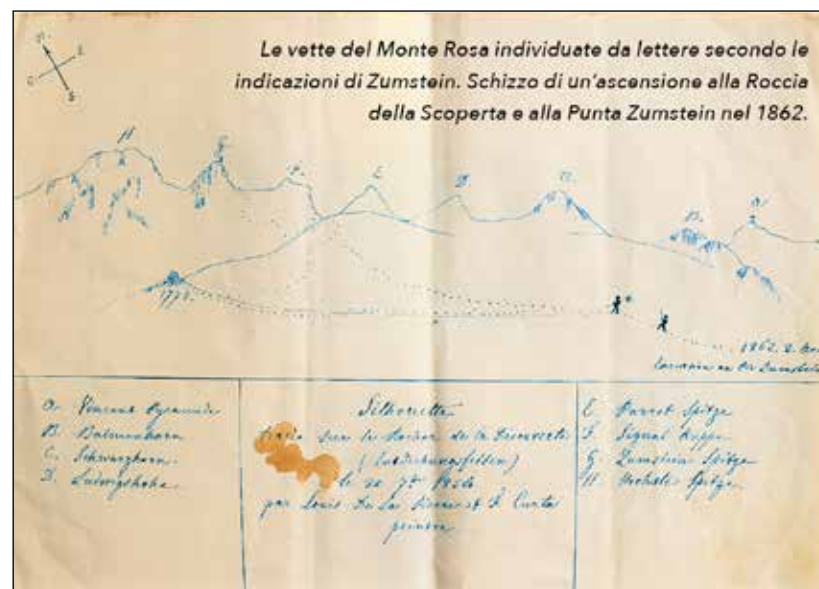 Le vette del Monte Rosa individuate da lettere secondo le
indicazioni di Zumstein. Schizzo di un'ascensione alla Roccia
della Scoperta e alla Punta Zumstein nel 1862.
N.
E
O
S
H
G
F.
E
D.
C.
B.
A.
177
1862. 2.
A. Vincent Pyramide
B. Balmenhorn
C. Schwarzhorn.
D. Ludwigshöhe.
Silhouette
sur le Rocher de la Découverte
(Entdeckungsfelsen)
le 20 7bre
par Louis De la Pierre et
peintre
E Parrot Spitze
F. Signal Kuppe
G Zumstein Spitze
H Höchste Spitze